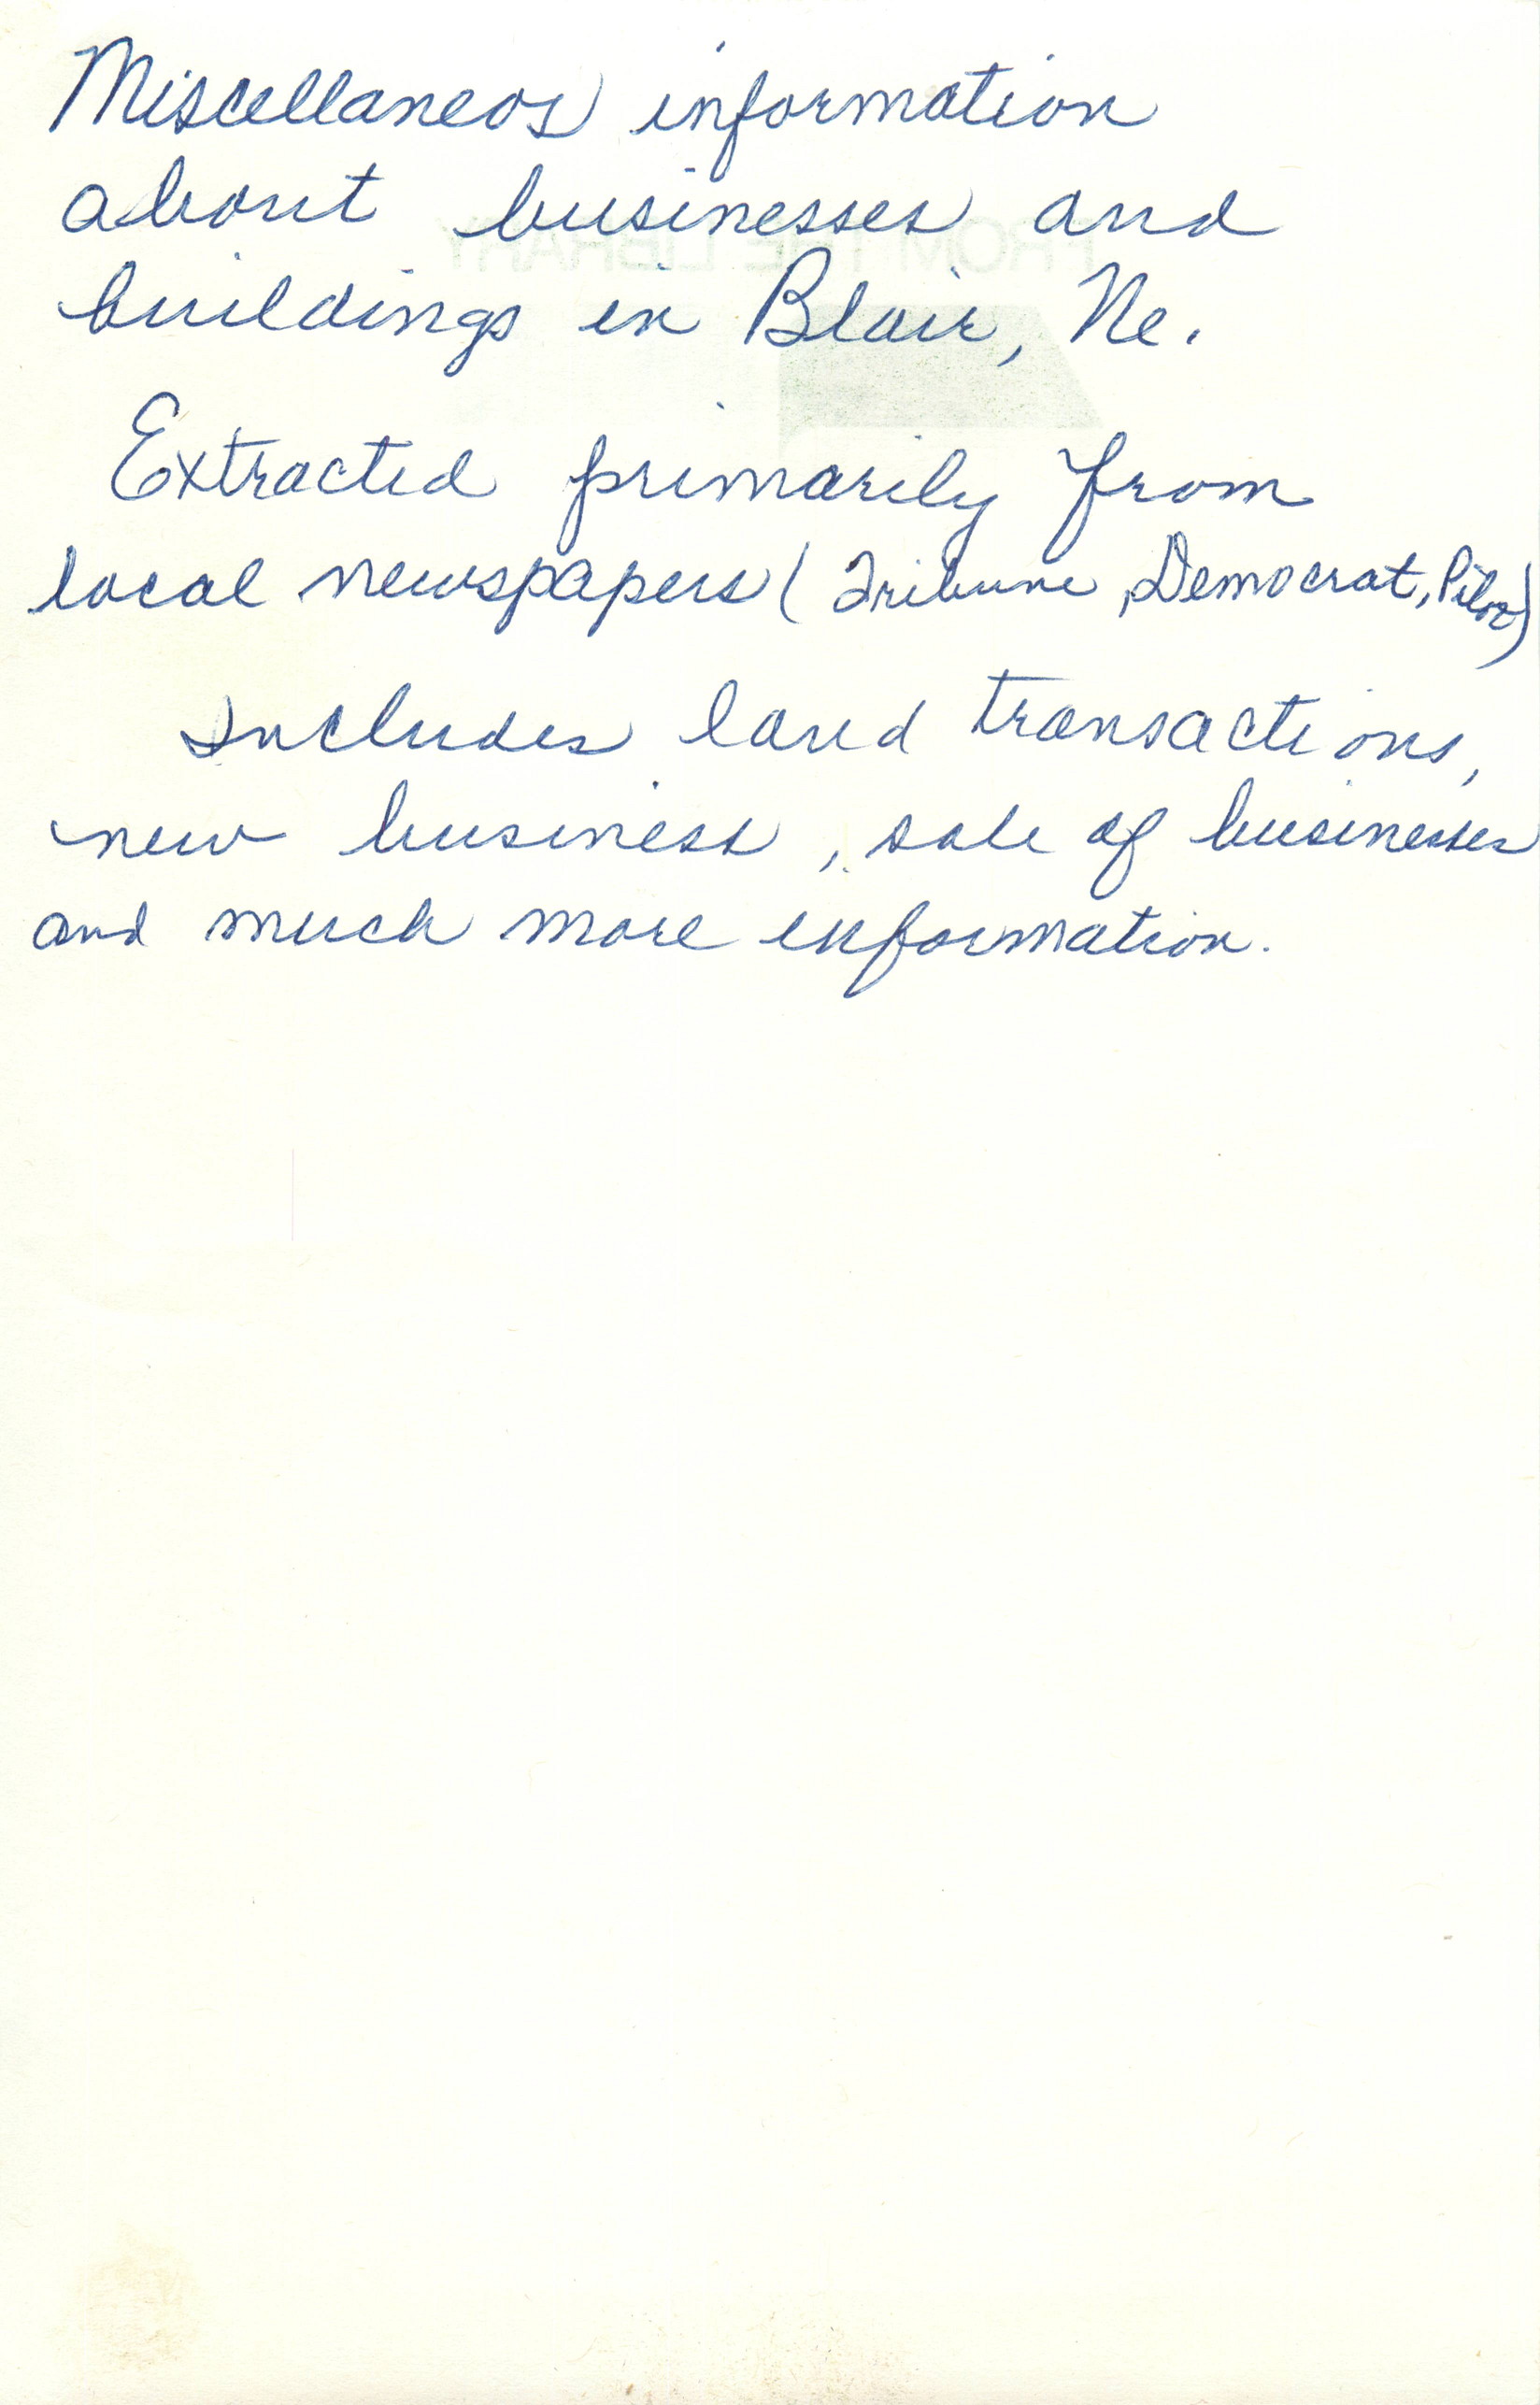 Miscellaneos information
about businesses and
buildings in Blair, Ne.
Extracted primarily from
local newspapers (Tribune, Democrat, Pilot)
Includes land transactions,
new business, sale of businesses
and much more information.
FROM THE LIBRARY